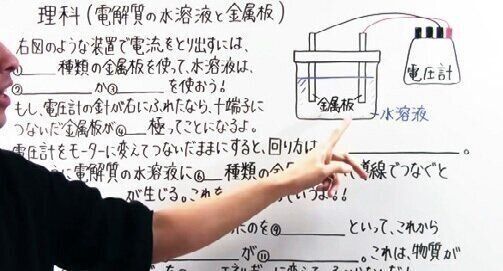 理科(電解質の水溶液と金属板)
右図のような装置で電流をとり出すには、
①____種類の金属板を使って、水溶液は、
②____か③____を使おう!
もし、電圧計の針が右にふれたなら、＋端子に
つないだ金属板が④__極ってことになるよ。
電圧計をモーターに変えてつないだままにすると、回り方は____。
に電解質の水溶液に⑥__種類の金 導線でつなぐと
が生じる。これを いうよ!!
のを⑨____といって、これから
____が⑪____。これは、物質が
電圧計
金属板
水溶液